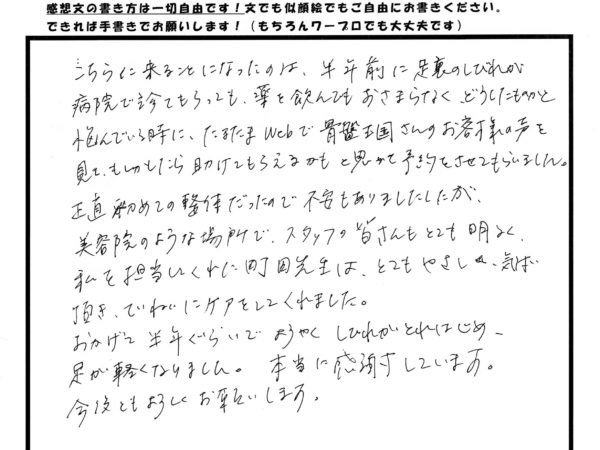 感想文の書き方は一切自由です！文でも似顔絵でもご自由にお書きください。
できれば手書きでお願いします！（もちろんワープロでも大丈夫です）
こちらに来ることになったのは、半年前に足裏のしびれが
病院で診てもらっても、薬を飲んでもおさまらなく、どうしたものかと
悩んでいる時に、たまたまWebで骨盤王国さんのお客様の声を
見て、もしかしたら助けてもらえるかもと思って予約をさせてもらいました。
正直初めての整体だったので不安もありましたしたが、
美容院のような場所で、スタッフの皆さんもとても明るく、
私を担当してくれた町田先生は、とてもやさしく、気ばい
頂き、ていねいにケアをしてくれました。
おかげで半年ぐらいでようやくしびれがとれはじめ、
足が軽くなりました。本当に感謝しています。
今後ともよろしくお願いします。